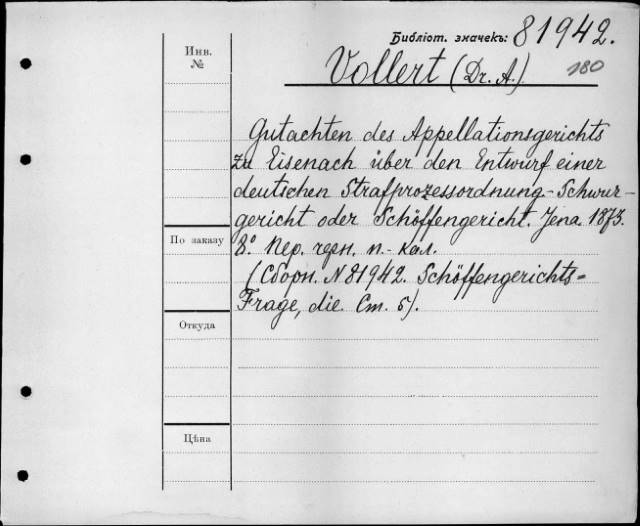 Библіот. значекъ: 81942.
Инв. №
Vollert (Dr. A.) 180
Gutachten des Appellationsgerichts
zu Eisenach über den Entwurf einer
deutschen Strafprozessordnung - Schwur-
gericht oder Schöffengericht. Jena. 1873.
8º. Пер. черн. п. - кал.
По заказу
(Сборн. N 81942. Schöffengerichts=
Frage, die. Ст. 5).
Откуда
Цѣна